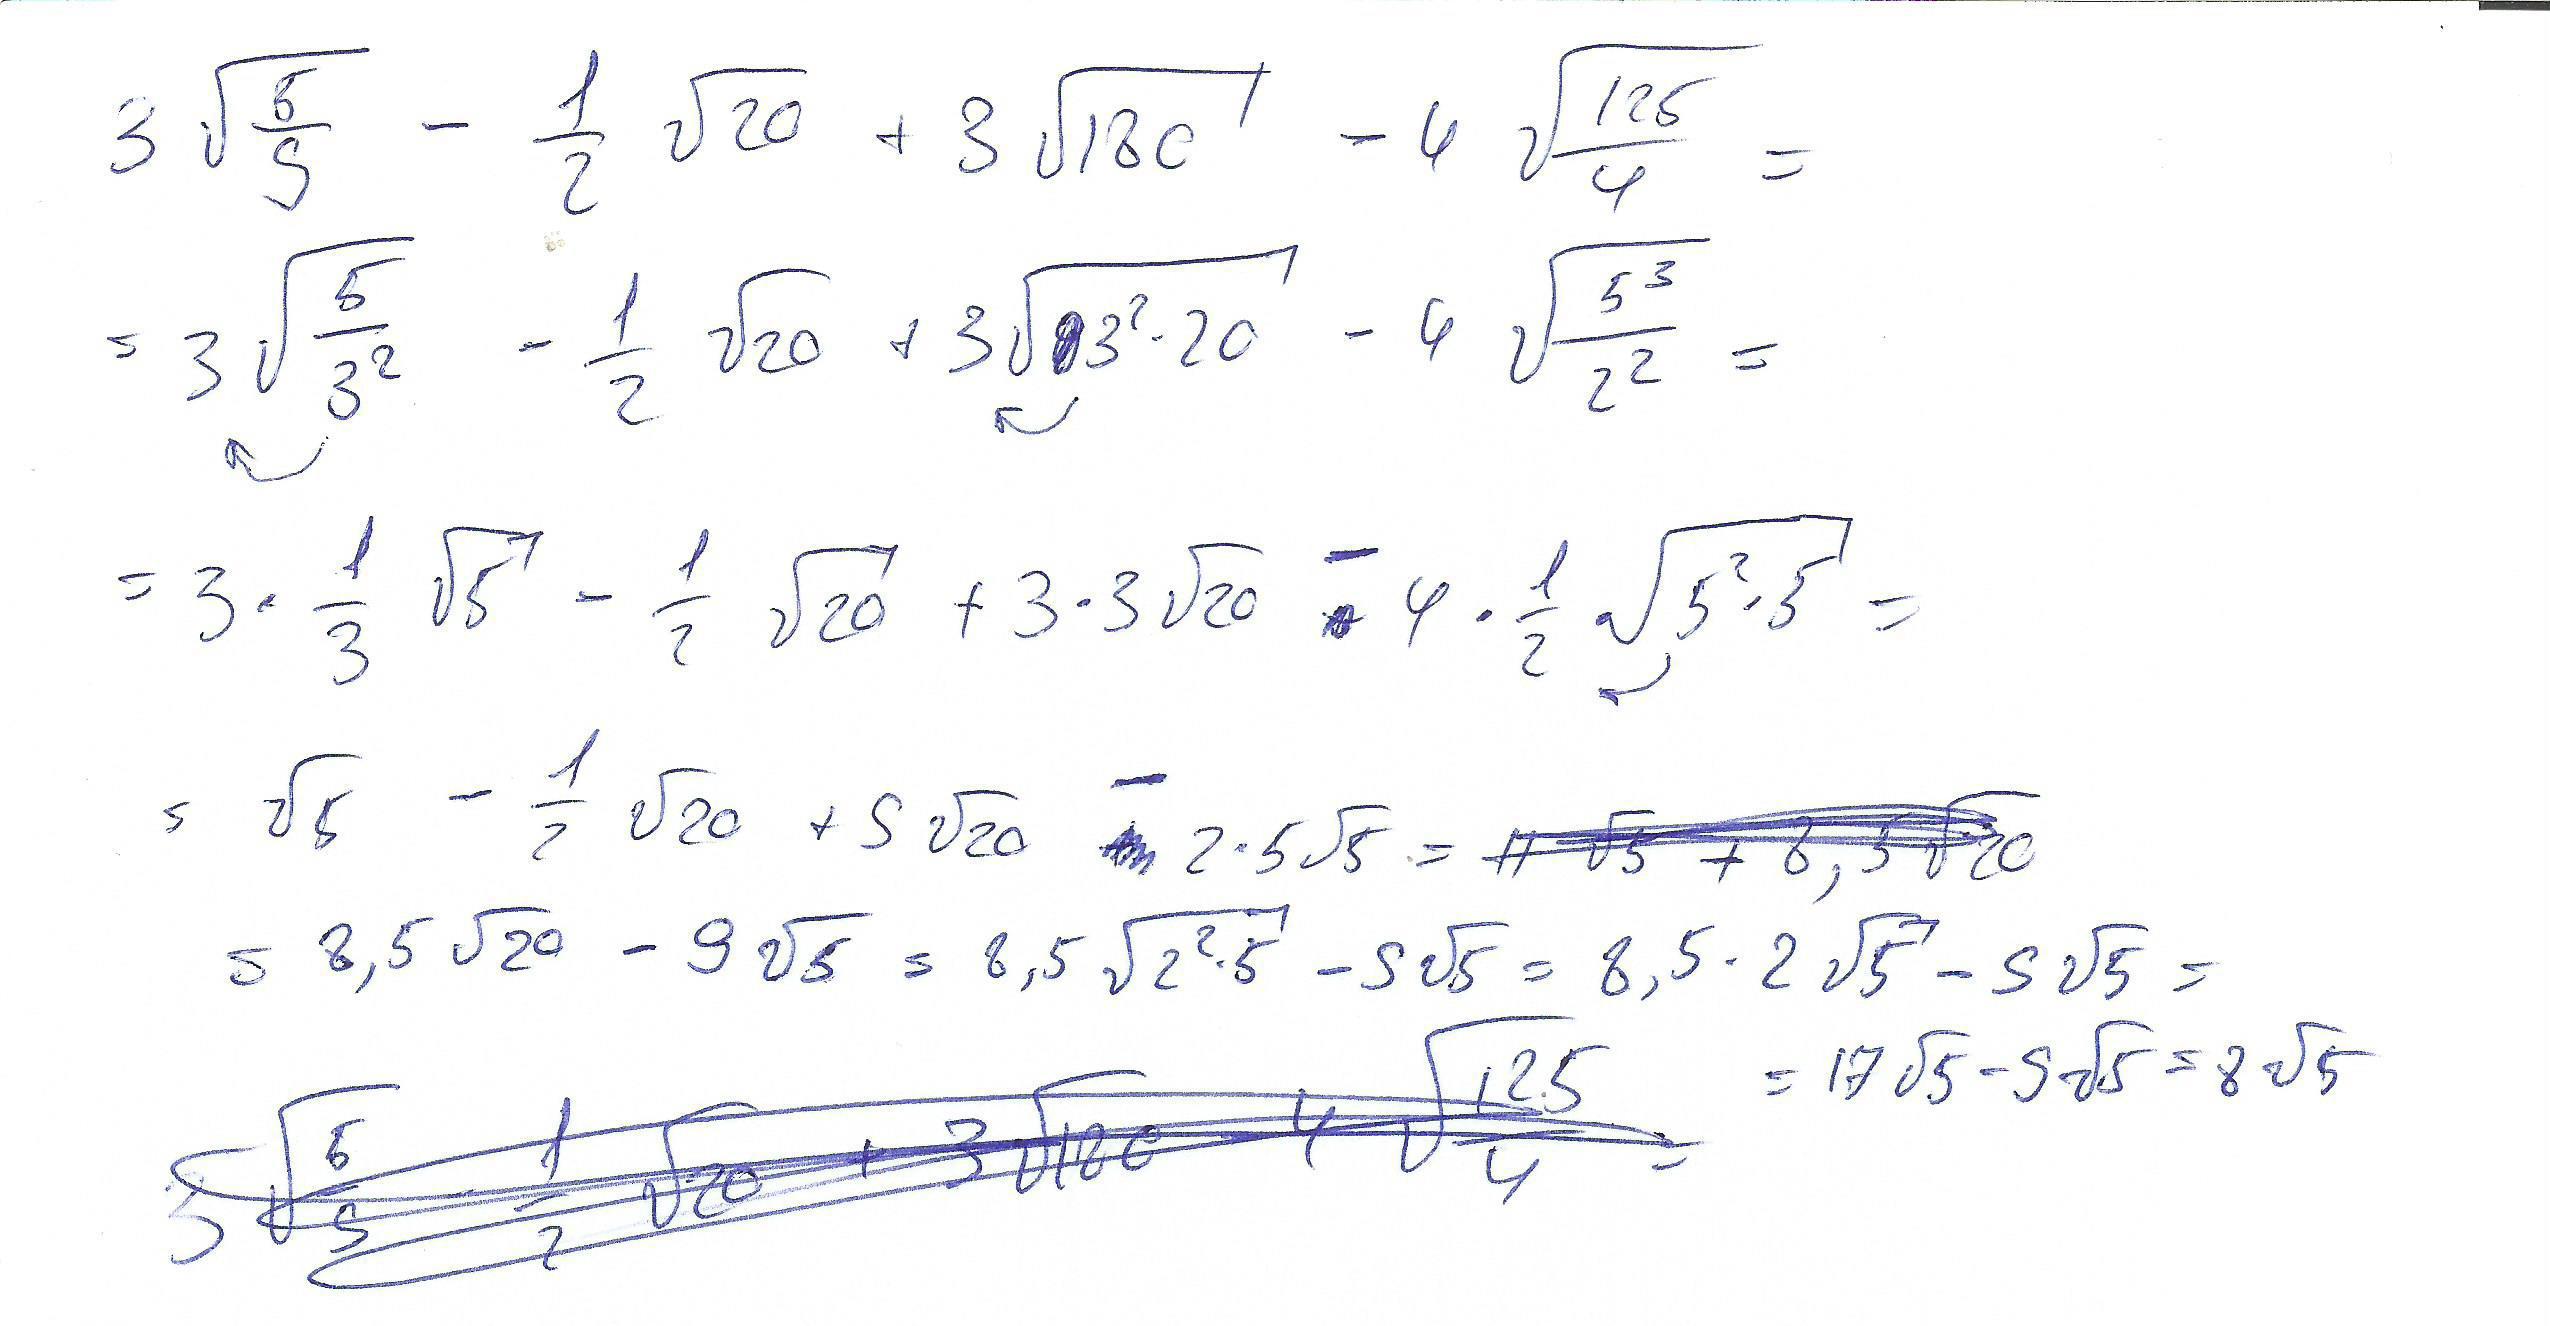 3 √(5/9) - 1/2 √20 + 3 √180 - 4 √(125/4) =
= 3 √(5/3²) - 1/2 √20 + 3 √(3²·20) - 4 √(5³/2²) =
= 3 · 1/3 √5 - 1/2 √20 + 3·3 √20 - 4 · 1/2 · √(5²·5) =
= √5 - 1/2 √20 + 9 √20 - 2·5 √5 = 11 √5 + 8,5 √20
= 8,5 √20 - 9 √5 = 8,5 √(2²·5) - 9 √5 = 8,5 · 2 √5 - 9 √5 =
= 17 √5 - 9 √5 = 8 √5
3 √(5/9) - 1/2 √20 + 3 √180 - 4 √(125/4) =